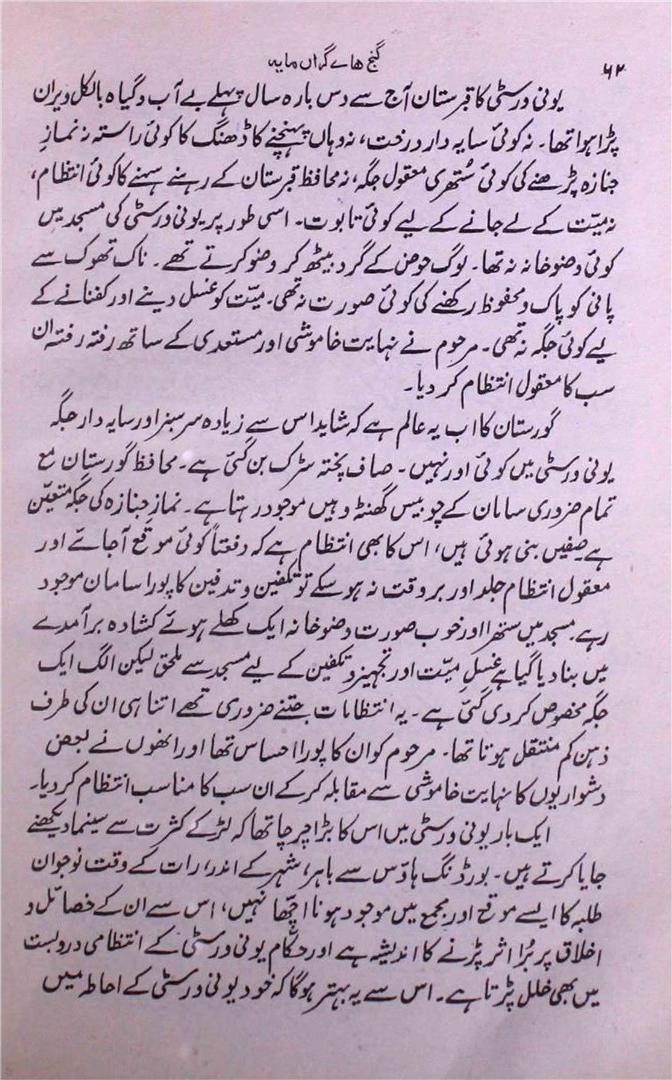 ۶۲
گنج ھاے گراں مایہ
یونی ورسٹی کا قبرستان آج سے دس بارہ سال پہلے بے آب و گیاہ بالکل ویران
پڑا ہوا تھا۔ نہ کوئی سایہ دار درخت، نہ وہاں پہنچنے کا ڈھنگ کا کوئی راستہ نہ نمازِ
جنازہ پڑھنے کی کوئی ستھری معقول جگہ، نہ محافظ قبرستان کے رہنے سہنے کا کوئی انتظام،
نہ میّت کے لے جانے کے لیے کوئی تابوت۔ اسی طور پر یونی ورسٹی کی مسجد میں
کوئی وضو خانہ نہ تھا۔ لوگ حوض کے گرد بیٹھ کر وضو کرتے تھے۔ ناک تھوک سے
پانی کو پاک و محفوظ رکھنے کی کوئی صورت نہ تھی۔ میّت کو غسل دینے اور کفنانے کے
لیے کوئی جگہ نہ تھی۔ مرحوم نے نہایت خاموشی اور مستعدی کے ساتھ رفتہ رفتہ ان
سب کا معقول انتظام کر دیا۔
گورستان کا اب یہ عالم ہے کہ شاید اس سے زیادہ سرسبز اور سایہ دار جگہ
یونی ورسٹی میں کوئی اور نہیں۔ صاف پختہ سڑک بن گئی ہے۔ محافظ گورستان مع
تمام ضروری سامان کے چوبیس گھنٹہ وہیں موجود رہتا ہے۔ نمازِ جنازہ کی جگہ متعیّن
ہے صفیں بنی ہوئی ہیں، اس کا بھی انتظام ہے کہ دفعتاً کوئی موقع آجائے اور
معقول انتظام جلد اور بر وقت نہ ہو سکے تو تکفین و تدفین کا پورا سامان موجود
رہے۔ مسجد میں ستھرا اور خوب صورت وضو خانہ ایک کھلے ہوئے کشادہ برآمدے
میں بنا دیا گیا ہے غسلِ میّت اور تجہیز و تکفین کے لیے مسجد سے ملحق لیکن الگ ایک
جگہ مخصوص کر دی گئی ہے۔ یہ انتظامات جتنے ضروری تھے اتنا ہی ان کی طرف
ذہن کم منتقل ہوتا تھا۔ مرحوم کو ان کا پورا احساس تھا اور انھوں نے بعض
دشواریوں کا نہایت خاموشی سے مقابلہ کر کے ان سب کا مناسب انتظام کر دیا۔
ایک بار یونی ورسٹی میں اس کا بڑا چرچا تھا کہ لڑکے کثرت سے سینما دیکھنے
جایا کرتے ہیں۔ بورڈنگ ہاؤس سے باہر، شہر کے اندر رات کے وقت نوجوان
طلبہ کا ایسے موقع اور مجمع میں موجود ہونا اچھا نہیں، اس سے ان کے خصائل و
اخلاق پر بُرا اثر پڑنے کا اندیشہ ہے اور حکّام یونی ورسٹی کے انتظامی در و بست
میں بھی خلل پڑتا ہے۔ اس سے یہ بہتر ہوگا کہ خود یونی ورسٹی کے احاطہ میں